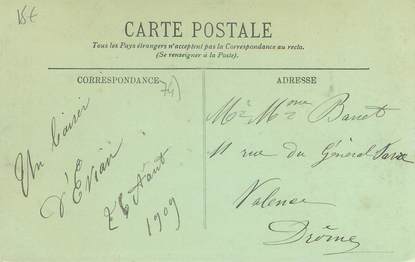 15€
CARTE POSTALE
Tous les Pays étrangers n'acceptent pas la Correspondance au recto.
(Se renseigner à la Poste).
CORRESPONDANCE
74)
Un baiser
d'Evian
26 Août
1909
ADRESSE
Mr Mme Barret
11 rue du Général
Valence
Drôme